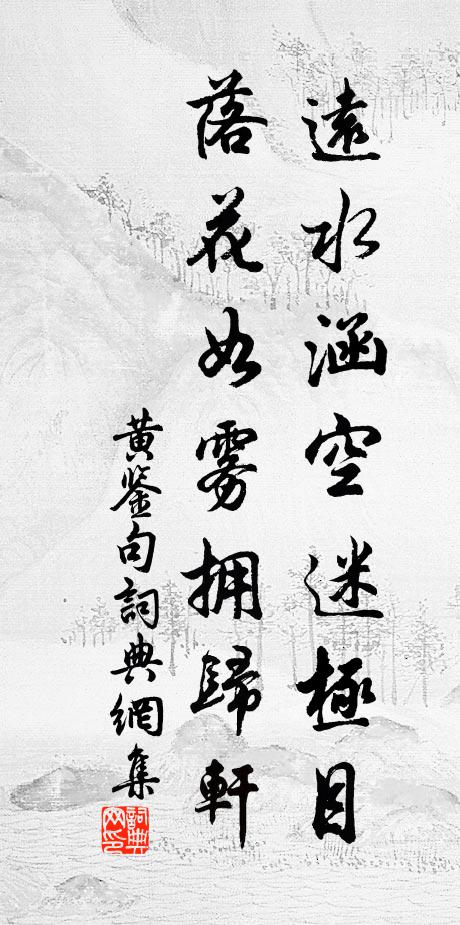 遠水涵空迷極目
落花如雾拥歸軒
黄鉴句詞典網集
詞典网印